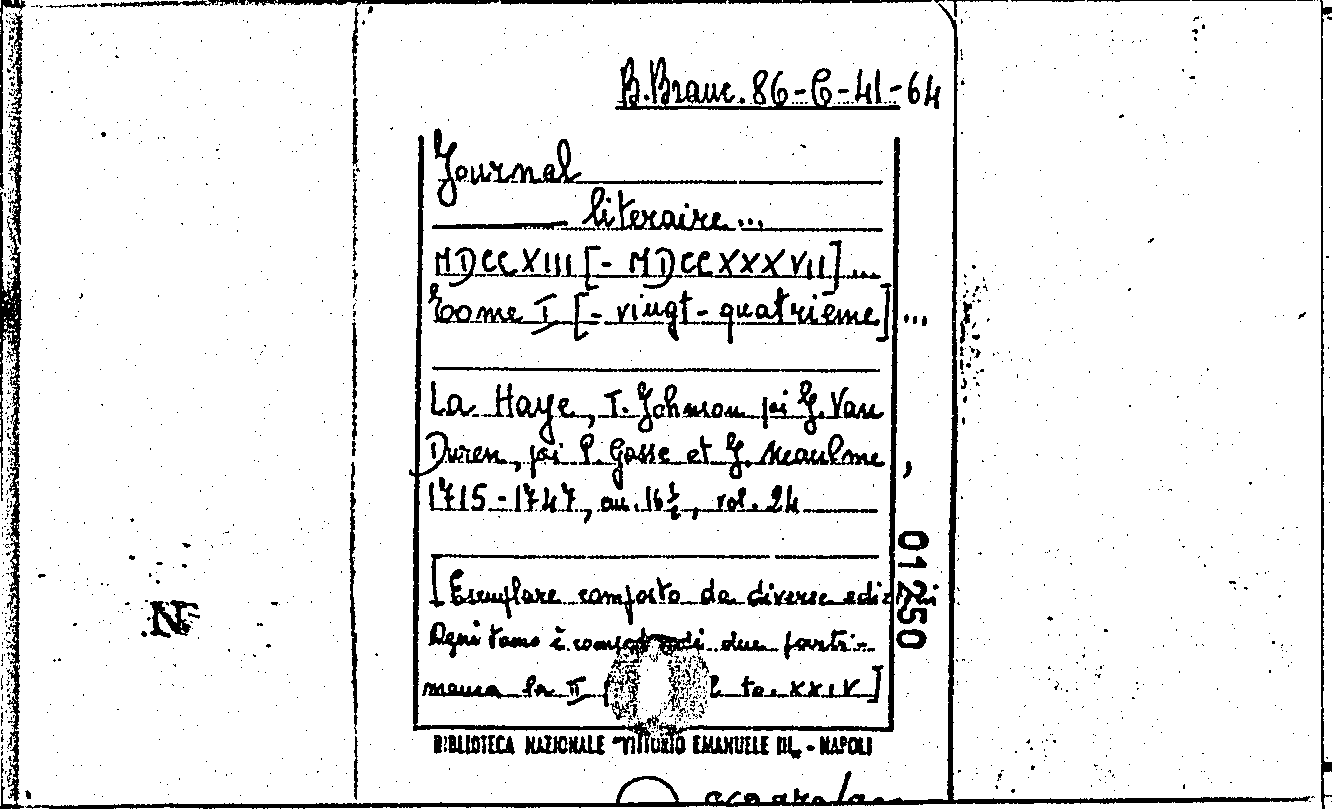 B. Branc. 86-C-41-64
Journal
literaire...
MDCCXIII [- MDCCXXXVII]...
Tome I [- vingt-quatrieme]...
La Haye, T. Johnson poi G. Van
Duren, poi P. Gosse et J. Neaulme,
1715-1747, in. 16½, vol. 24
01250
[Esemplare composto da diverse edizioni
Ogni tomo è composto di due parti -
manca la II to. XXIV]
BIBLIOTECA NAZIONALE "VITTORIO EMANUELE III" - NAPOLI
N